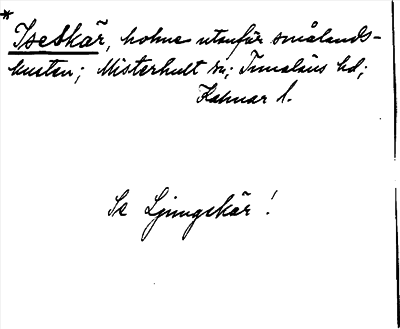 *
Iseskär, holme utanför smålands-
kusten; Misterhult sn; Tunaläns hd;
Kalmar l.
Se Ljungskär!